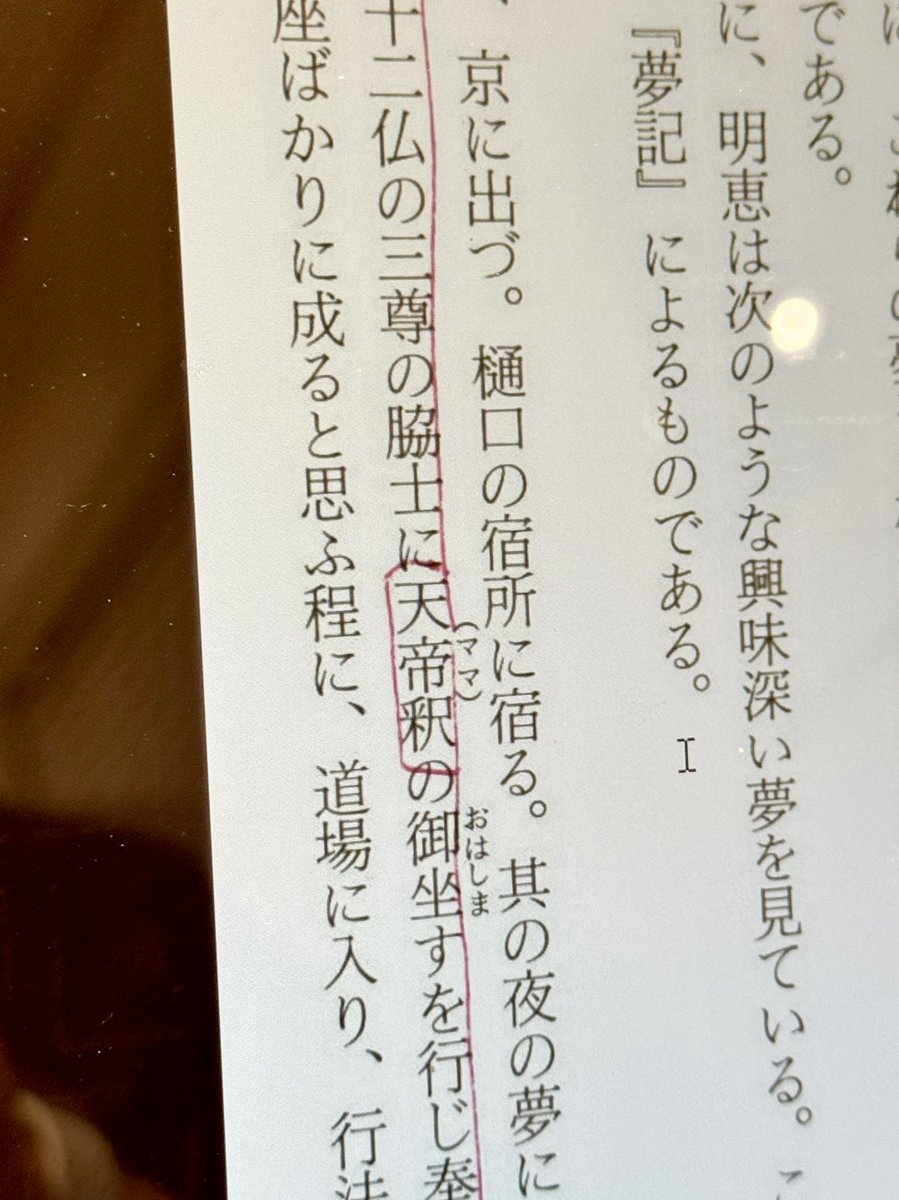 である。
に、明恵は次のような興味深い夢を見ている。こ
『夢記』によるものである。
、京に出づ。樋口の宿所に宿る。其の夜の夢に
十二仏の三尊の脇士に天帝釈の御坐すを行じ奉
(ママ)
おはしま
座ばかりに成ると思ふ程に、道場に入り、行法